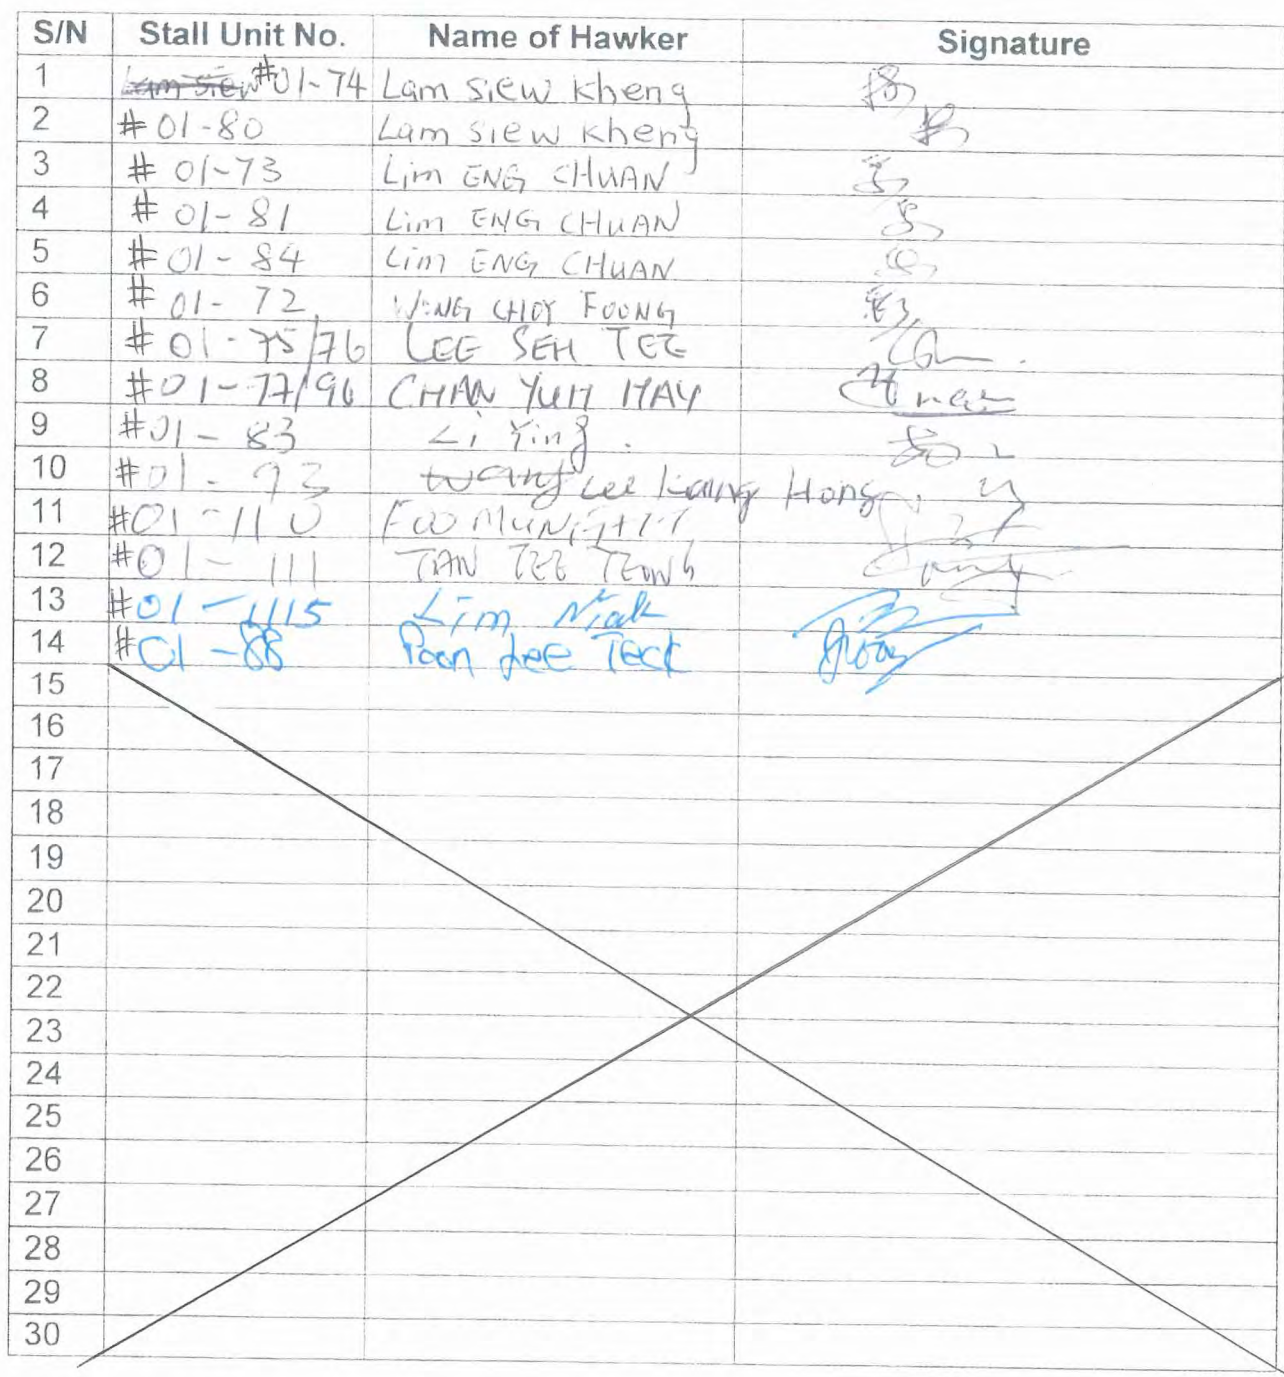 S/N Stall Unit No. Name of Hawker Signature
1 Lam Siew #01-74 Lam Siew Kheng
2 #01-80 Lam Siew Kheng
3 #01-73 Lim ENG CHUAN
4 #01-81 Lim ENG CHUAN
5 #01-84 Lim ENG CHUAN
6 #01-72 CHOY FOONG
7 #01-75/76 LEE SEH TEE
8 #01-77/96 CHAN YUH HAY
9 #01-83 Li Ying.
10 #01-93 Wang Lee Hong
11 #01-110 FOO
12 #01-111 TAN TEE TEONG
13 #01-1115 Lim Niak
14 #01-88 Poon Lee Teck
15
16
17
18
19
20
21
22
23
24
25
26
27
28
29
30